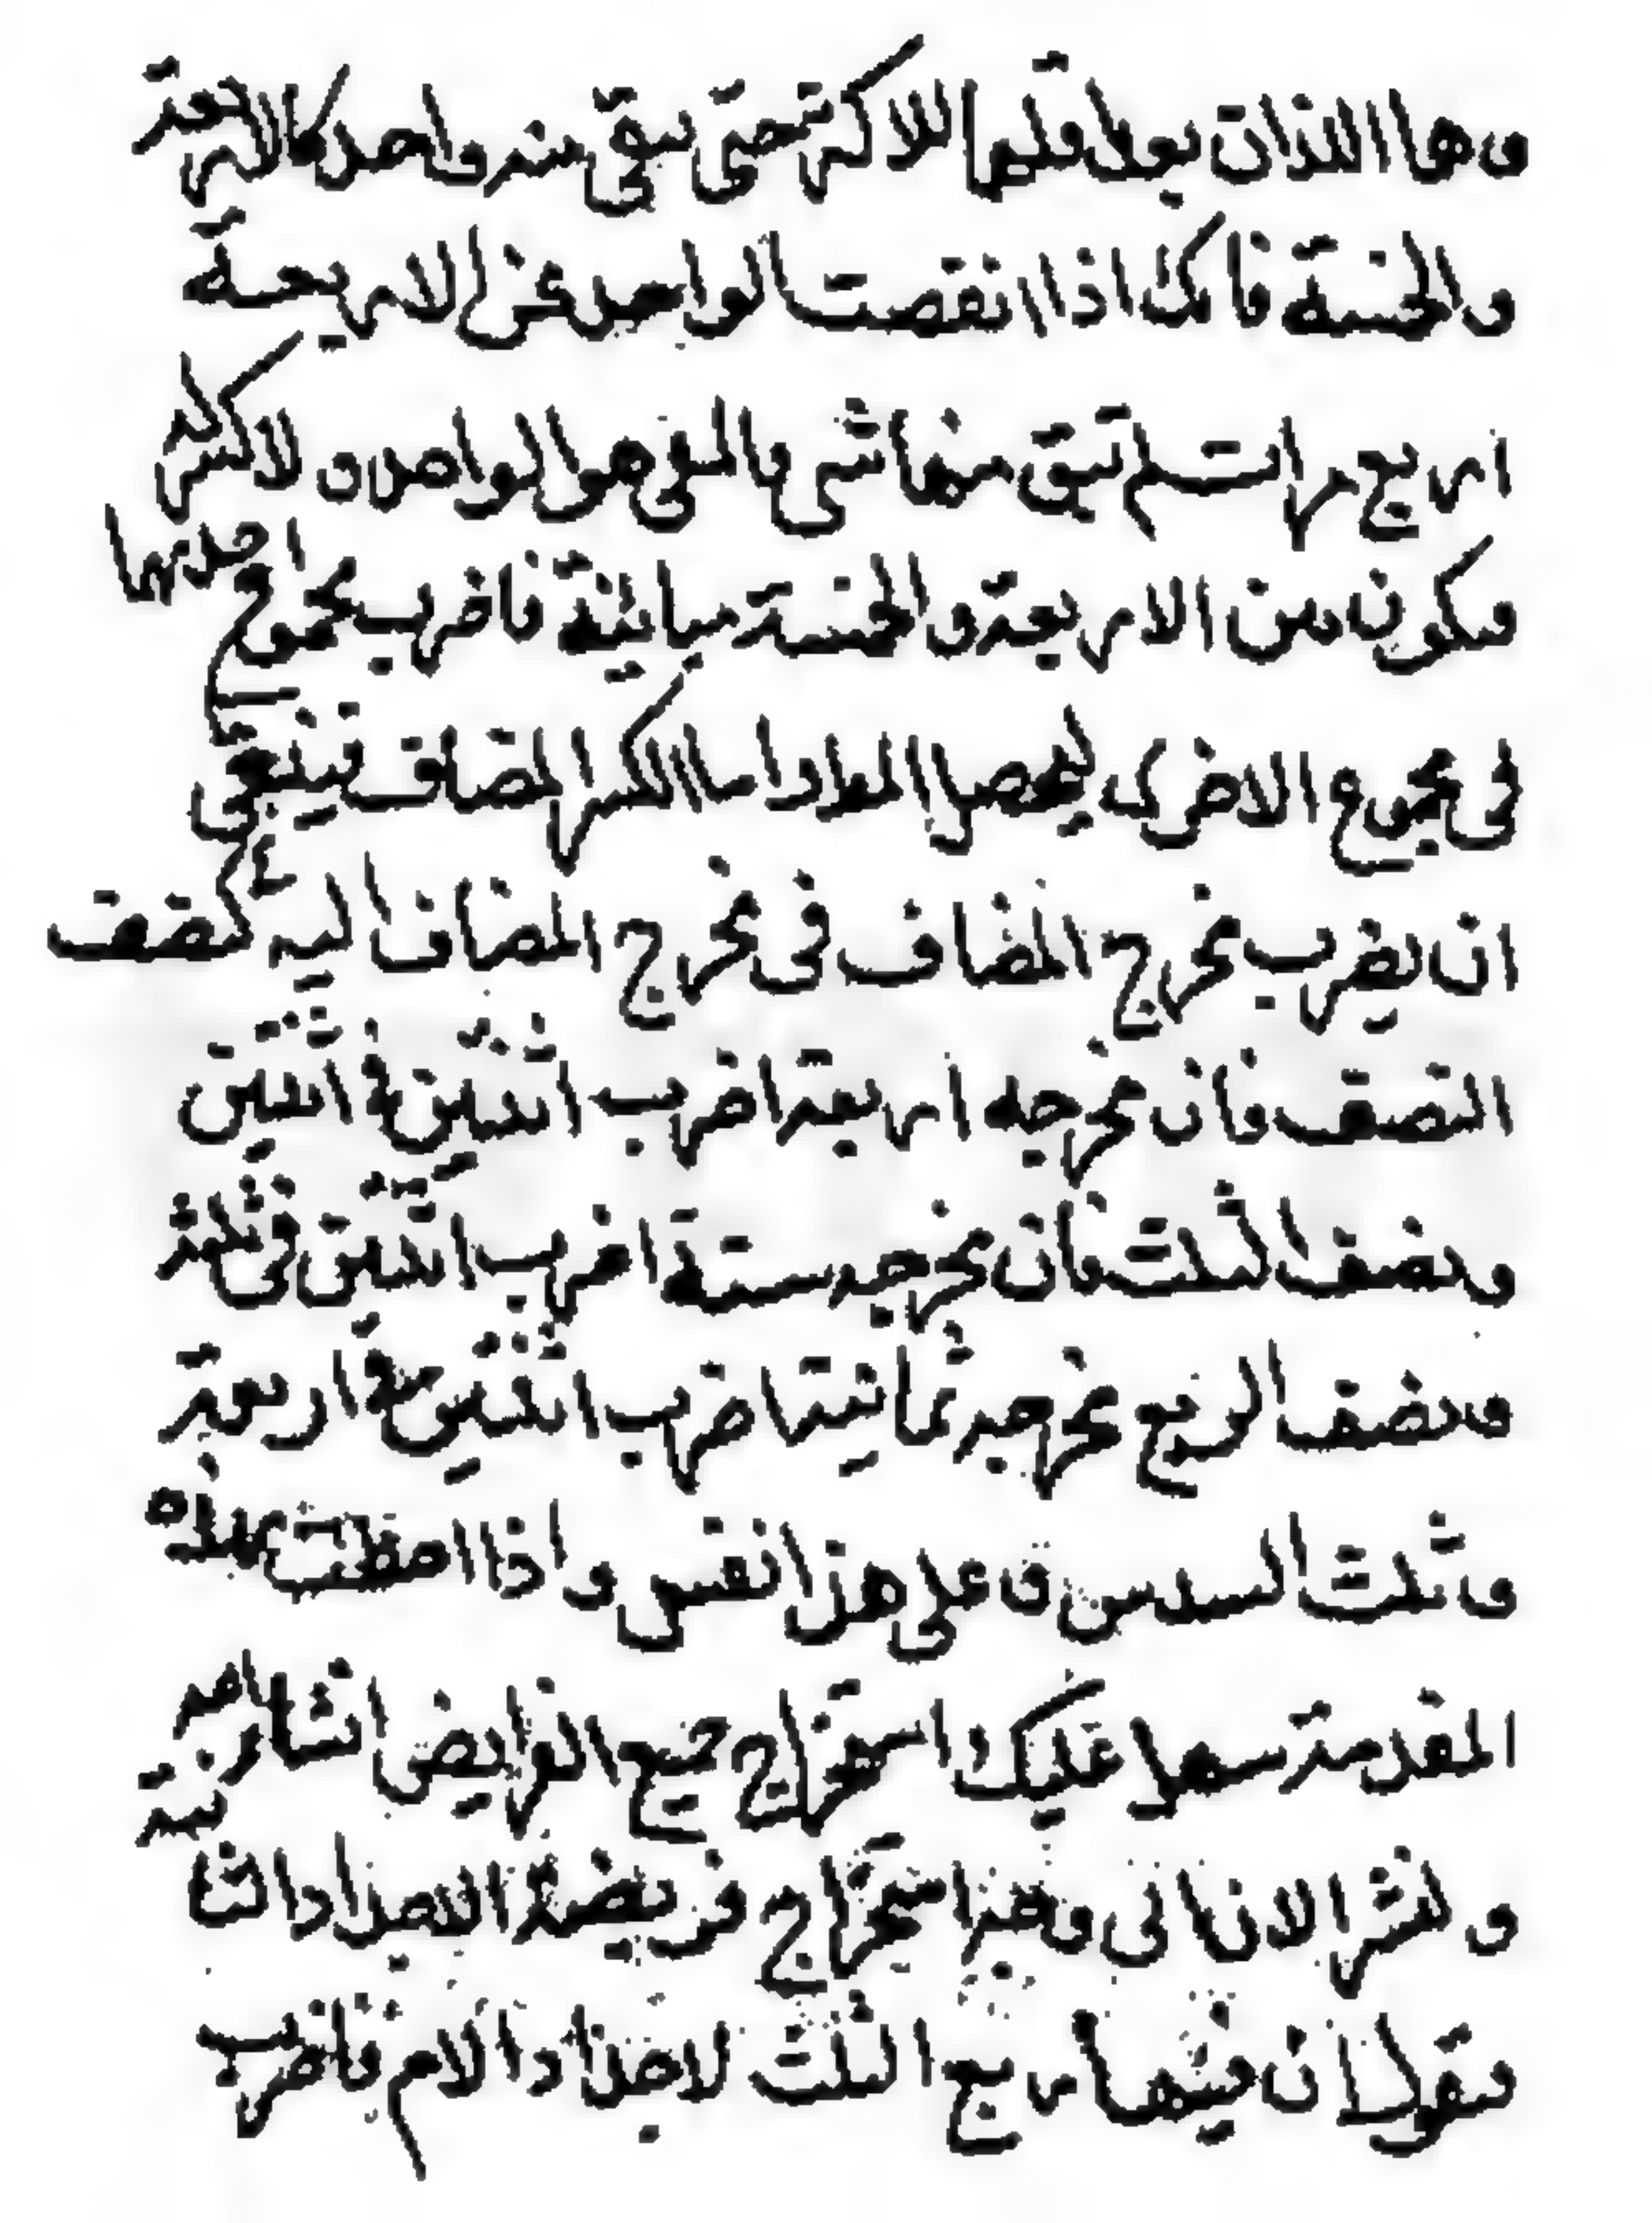 وهما اللذان يعد اقلهما الاكثر حتى يبقى منه واحد كالاربعة
والخمسة فانك اذا انقصت الواحد عن الاربعة
اربع مرات لم تبق منها شى بالمبقى هو الواحد ولاكثر
فيكون من الاربعة والخمسة مباينة فاضرب مخرج احديهما
فى مخرج الاخرى ليحصل المراد اما الكسر المضاف فينبغى
ان يضرب مخرج المضاف فى مخرج المضاف اليه كنصف
النصف فان مخرجه اربعة اضرب اثنين فى اثنين
ونصف الثلث فان مخرجه ستة اضرب اثنين فى ثلثة
ونصف الربع مخرجه ثمانية اضرب اثنين فى اربعة
وثلث السدس وعلى هذا نفس واذا حفظت هذه
المقدمة سهل عليك استخراج جميع الفرايض الشاهرنية
ولنشر الان الى وهذا استخراج فريضة الاجداد الثا
فنقول ان فيها ربع الثلث لاجداد الام فاضرب